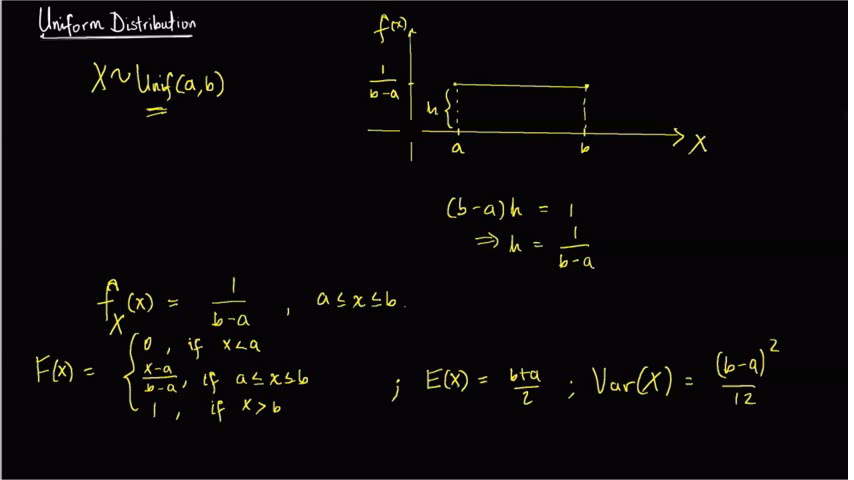 Uniform Distribution
X ~ Unif(a,b)
f(x)
1/(b-a)
h {
a b X
(b-a)h = 1
⇒ h = 1/(b-a)
f_X(x) = 1/(b-a) , a ≤ x ≤ b.
F(x) = { 0, if x<a
(x-a)/(b-a), if a ≤ x ≤ b
1, if x > b
; E(X) = (b+a)/2 ; Var(X) = (b-a)²/12